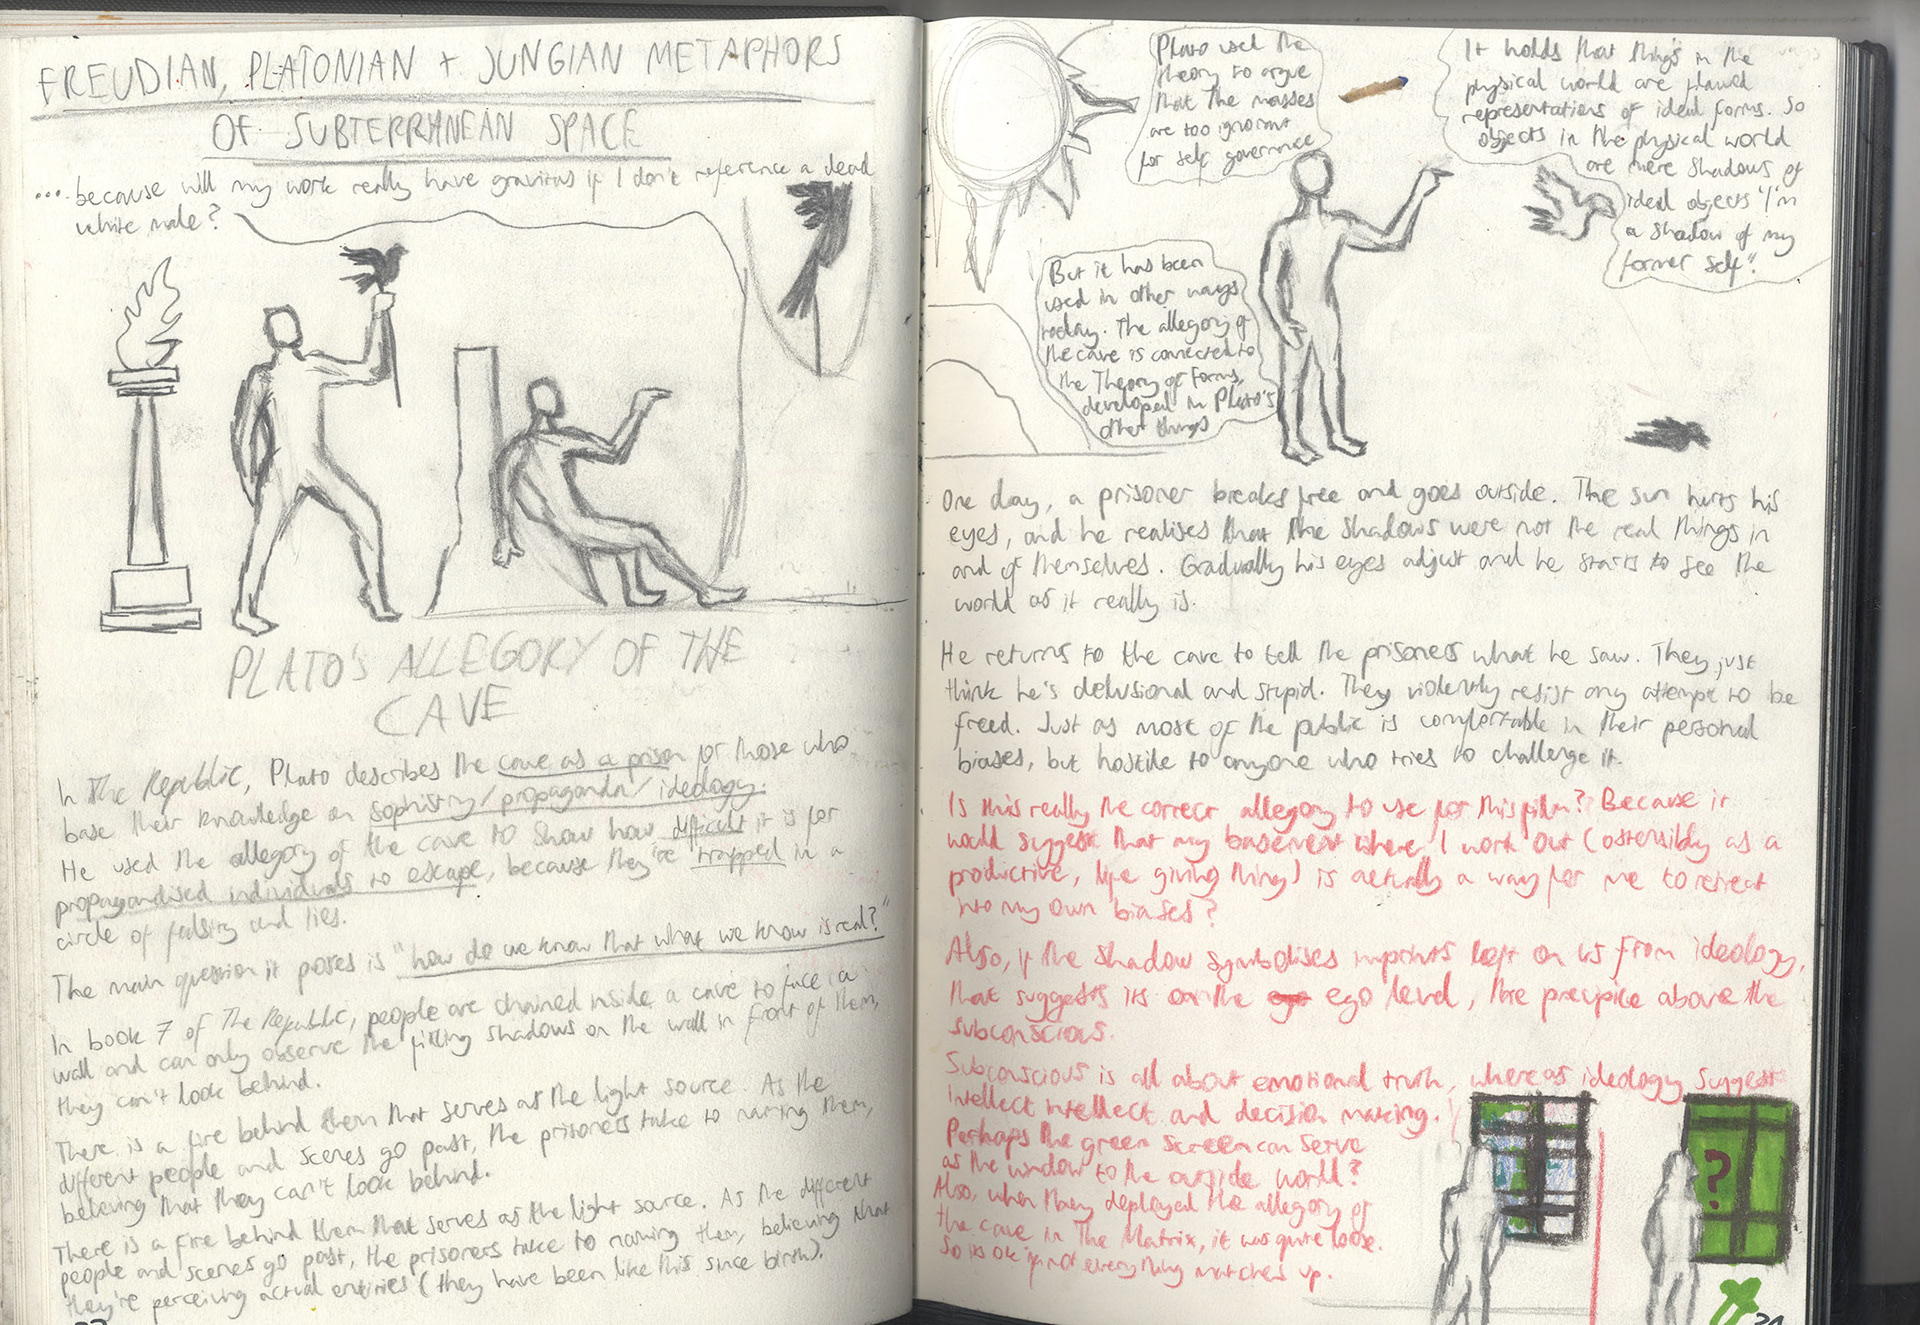 FREUDIAN, PLATONIAN + JUNGIAN METAPHORS
OF SUBTERRANEAN SPACE
... because will my work really have gravitas if I don't reference a dead
white male?
PLATO'S ALLEGORY OF THE
CAVE
In The Republic, Plato describes the cave as a prison for those who
base their knowledge on sophistry/propaganda/ideology.
He used the allegory of the cave to show how difficult it is for
propagandised individuals to escape, because they're trapped in a
circle of falsity and lies.
The main question it poses is "how do we know that what we know is real?"
In book 7 of The Republic, people are chained inside a cave to face a
wall and can only observe the flitting shadows on the wall in front of them,
they can't look behind.
There is a fire behind them that serves as the light source. As the
different people and scenes go past, the prisoners take to naming them,
believing that they can't look behind.
There is a fire behind them that serves as the light source. As the different
people and scenes go past, the prisoners take to naming them, believing that
they're perceiving actual entities (they have been like this since birth).
Plato used the
theory to argue
that the masses
are too ignorant
for self governance
But it has been
used in other ways
today. The allegory of
the cave is connected to
the Theory of Forms,
developed in Plato's
other things
It holds that things in the
physical world are flawed
representations of ideal forms. So
objects in the physical world
are mere shadows of
ideal objects "I'm
a shadow of my
former self".
One day, a prisoner breaks free and goes outside. The sun hurts his
eyes, and he realises that the shadows were not the real things in
and of themselves. Gradually his eyes adjust and he starts to see the
world as it really is.
He returns to the cave to tell the prisoners what he saw. They just
think he's delusional and stupid. They violently resist any attempt to be
freed. Just as most of the public is comfortable in their personal
biases, but hostile to anyone who tries to challenge it.
Is this really the correct allegory to use for this film? Because it
would suggest that my basement where I work out (ostensibly as a
productive, life giving thing) is actually a way for me to retreat
into my own biases?
Also, if the shadow symbolises imprints left on us from ideology,
that suggests its on the ego level, the precipice above the
subconscious.
Subconscious is all about emotional truth, whereas ideology suggest
intellect intellect and decision making.
Perhaps the green screen can serve
as the window to the outside world?
Also, when they deployed the allegory of
the cave in The Matrix, it was quite loose.
So its ok if not everything matches up.
?